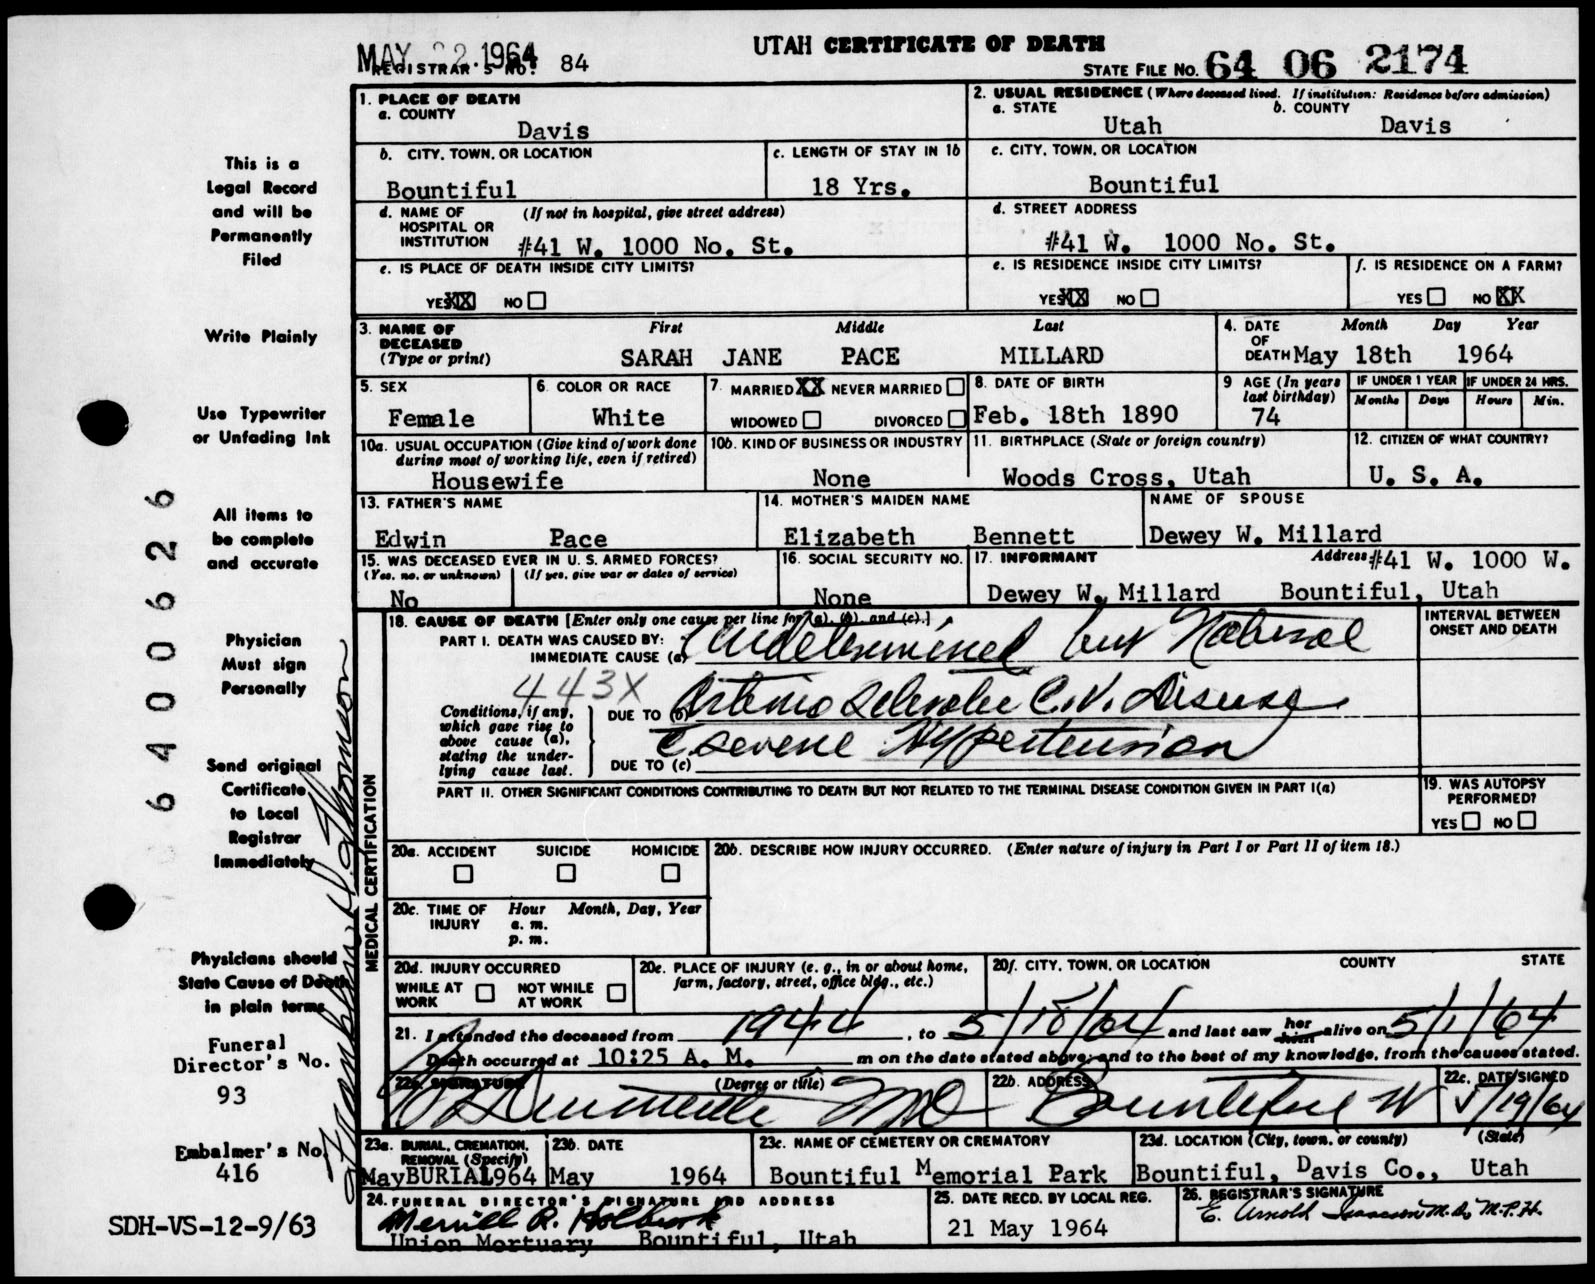 MAY 22.1964
UTAH CERTIFICATE OF DEATH
REGISTRAR'S NO. 84
STATE FILE NO. 64 06 2174
1. PLACE OF DEATH
a. COUNTY
Davis
2. USUAL RESIDENCE (Where deceased lived. If institution: Residence before admission)
a. STATE b. COUNTY
Utah Davis
b. CITY, TOWN, OR LOCATION
Bountiful
c. LENGTH OF STAY IN 1b
18 Yrs.
c. CITY, TOWN, OR LOCATION
Bountiful
d. NAME OF (If not in hospital, give street address)
HOSPITAL OR
INSTITUTION #41 W. 1000 No. St.
d. STREET ADDRESS
#41 W. 1000 No. St.
e. IS PLACE OF DEATH INSIDE CITY LIMITS?
YES XX NO
e. IS RESIDENCE INSIDE CITY LIMITS?
YES XX NO
f. IS RESIDENCE ON A FARM?
YES NO XX
3. NAME OF First Middle Last
DECEASED
(Type or print) SARAH JANE PACE MILLARD
4. DATE Month Day Year
OF
DEATH May 18th 1964
5. SEX
Female
6. COLOR OR RACE
White
7. MARRIED XX NEVER MARRIED
WIDOWED DIVORCED
8. DATE OF BIRTH
Feb. 18th 1890
9 AGE (In years
last birthday)
74
IF UNDER 1 YEAR IF UNDER 24 HRS.
Months Days Hours Min.
10a. USUAL OCCUPATION (Give kind of work done
during most of working life, even if retired)
Housewife
10b. KIND OF BUSINESS OR INDUSTRY
None
11. BIRTHPLACE (State or foreign country)
Woods Cross, Utah
12. CITIZEN OF WHAT COUNTRY?
U. S. A.
13. FATHER'S NAME
Edwin Pace
14. MOTHER'S MAIDEN NAME
Elizabeth Bennett
NAME OF SPOUSE
Dewey W. Millard
15. WAS DECEASED EVER IN U. S. ARMED FORCES?
(Yes, no, or unknown) (If yes, give war or dates of service)
No
16. SOCIAL SECURITY NO.
None
17. INFORMANT Address #41 W. 1000 W.
Dewey W. Millard Bountiful, Utah
18. CAUSE OF DEATH [Enter only one cause per line for (a), (b), and (c).]
INTERVAL BETWEEN
ONSET AND DEATH
PART I. DEATH WAS CAUSED BY:
IMMEDIATE CAUSE (a) Undetermined but Natural
443X
Conditions, if any,
which gave rise to
above cause (a),
stating the under-
lying cause last.
DUE TO (b) Arterio Sclerotic C.V. Disease
c severe Hypertension
DUE TO (c)
PART II. OTHER SIGNIFICANT CONDITIONS CONTRIBUTING TO DEATH BUT NOT RELATED TO THE TERMINAL DISEASE CONDITION GIVEN IN PART I(a)
19. WAS AUTOPSY
PERFORMED?
YES NO
20a. ACCIDENT SUICIDE HOMICIDE
20b. DESCRIBE HOW INJURY OCCURRED. (Enter nature of injury in Part I or Part II of item 18.)
20c. TIME OF Hour Month, Day, Year
INJURY a. m.
p. m.
20d. INJURY OCCURRED
WHILE AT NOT WHILE
WORK AT WORK
20e. PLACE OF INJURY (e. g., in or about home,
farm, factory, street, office bldg., etc.)
20f. CITY, TOWN, OR LOCATION COUNTY STATE
21. I attended the deceased from 1944, to 5/18/64 and last saw her him alive on 5/1/64
Death occurred at 10:25 A. M. m on the date stated above; and to the best of my knowledge, from the causes stated.
22a. SIGNATURE (Degree or title)
MD
22b. ADDRESS
Bountiful
22c. DATE SIGNED
5/19/64
23a. BURIAL, CREMATION,
REMOVAL (Specify)
May BURIAL 1964
23b. DATE
May 1964
23c. NAME OF CEMETERY OR CREMATORY
Bountiful Memorial Park
23d. LOCATION (City, town, or county) (State)
Bountiful, Davis Co., Utah
24. FUNERAL DIRECTOR'S SIGNATURE AND ADDRESS
Merrill R. Holbrook
Union Mortuary Bountiful, Utah
25. DATE RECD. BY LOCAL REG.
21 May 1964
26. REGISTRAR'S SIGNATURE
E. Arnold Isaacson M.D., M.P.H.
MEDICAL CERTIFICATION
This is a
Legal Record
and will be
Permanently
Filed
Write Plainly
Use Typewriter
or Unfading Ink
All items to
be complete
and accurate
Physician
Must sign
Personally
Send original
Certificate
to Local
Registrar
Immediately
Physicians should
State Cause of Death
in plain terms
Funeral
Director's No.
93
Embalmer's No.
416
SDH-VS-12-9/63
6400626
D. Thomson